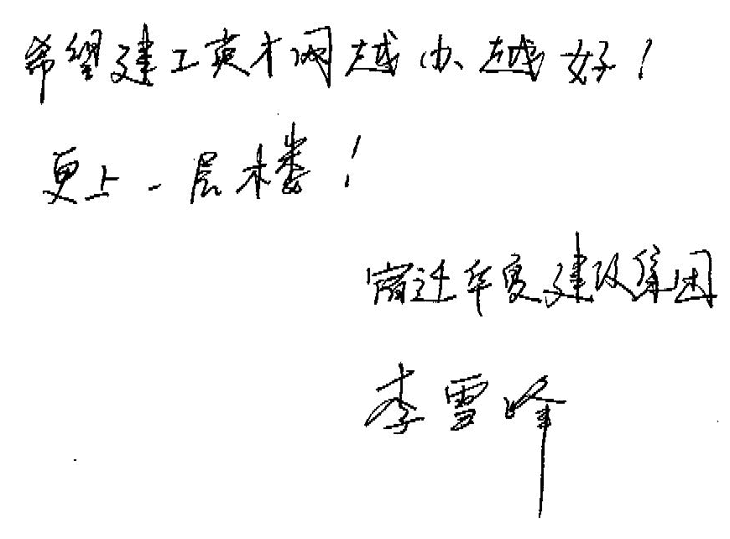 希望建工英才网越办越好!
更上一层楼!
宿迁华夏建设集团
李雪峰